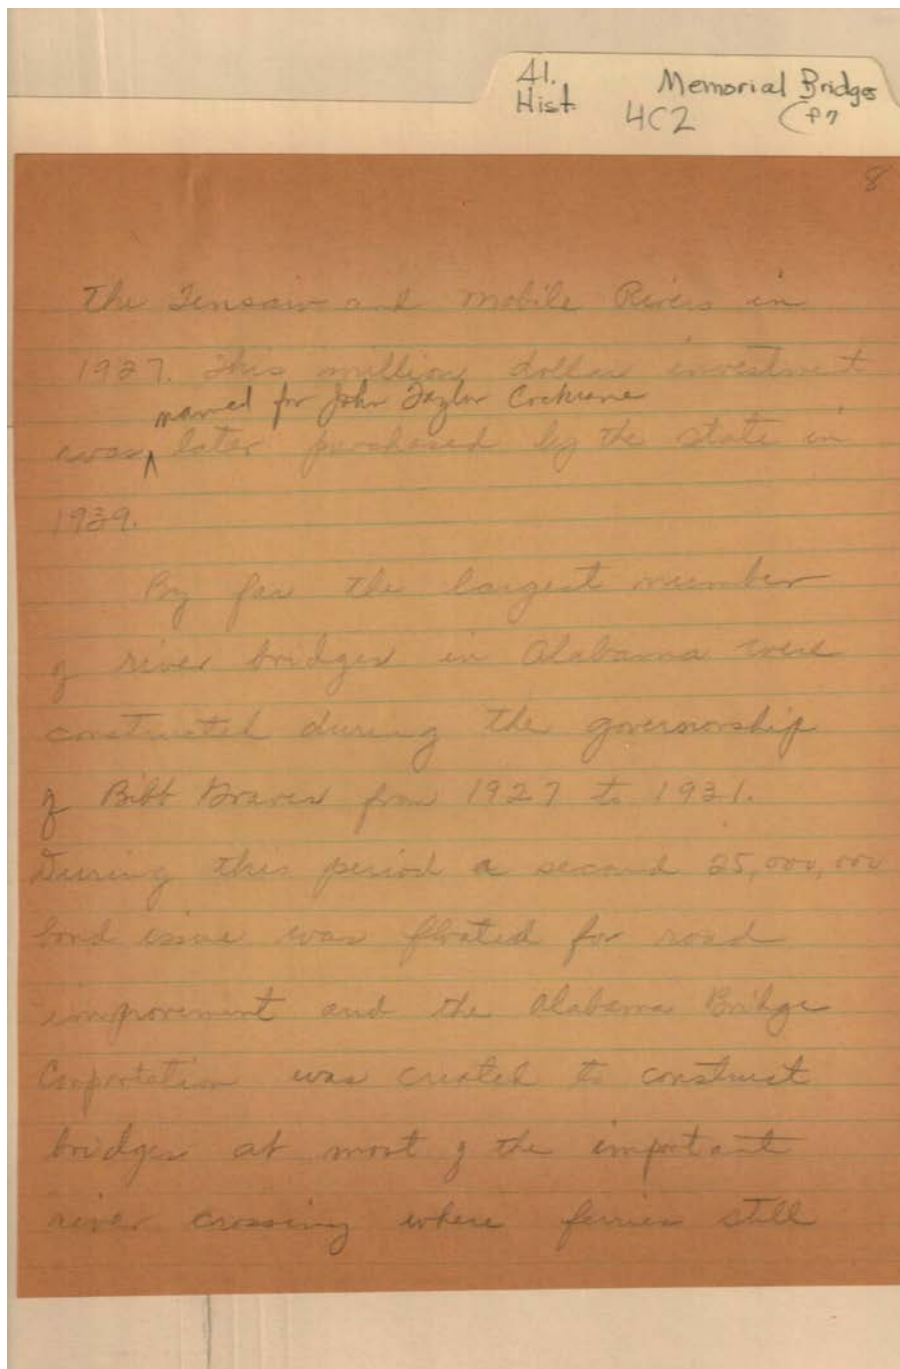 41.
Hist
Memorial Bridges
4C2
8
The Tensaw and Mobile Rivers in
1927. This million dollar investment
named for John Taylor Cochrane
was ^ later purchased by the state in
1939.
By far the largest number
of river bridges in Alabama were
constructed during the governorship
of Bibb Graves from 1927 to 1931.
During this period a second 25,000,000
bond issue was floated for road
improvement and the Alabama Bridge
Corportation was created to construct
bridges at most of the important
river crossing where ferries still